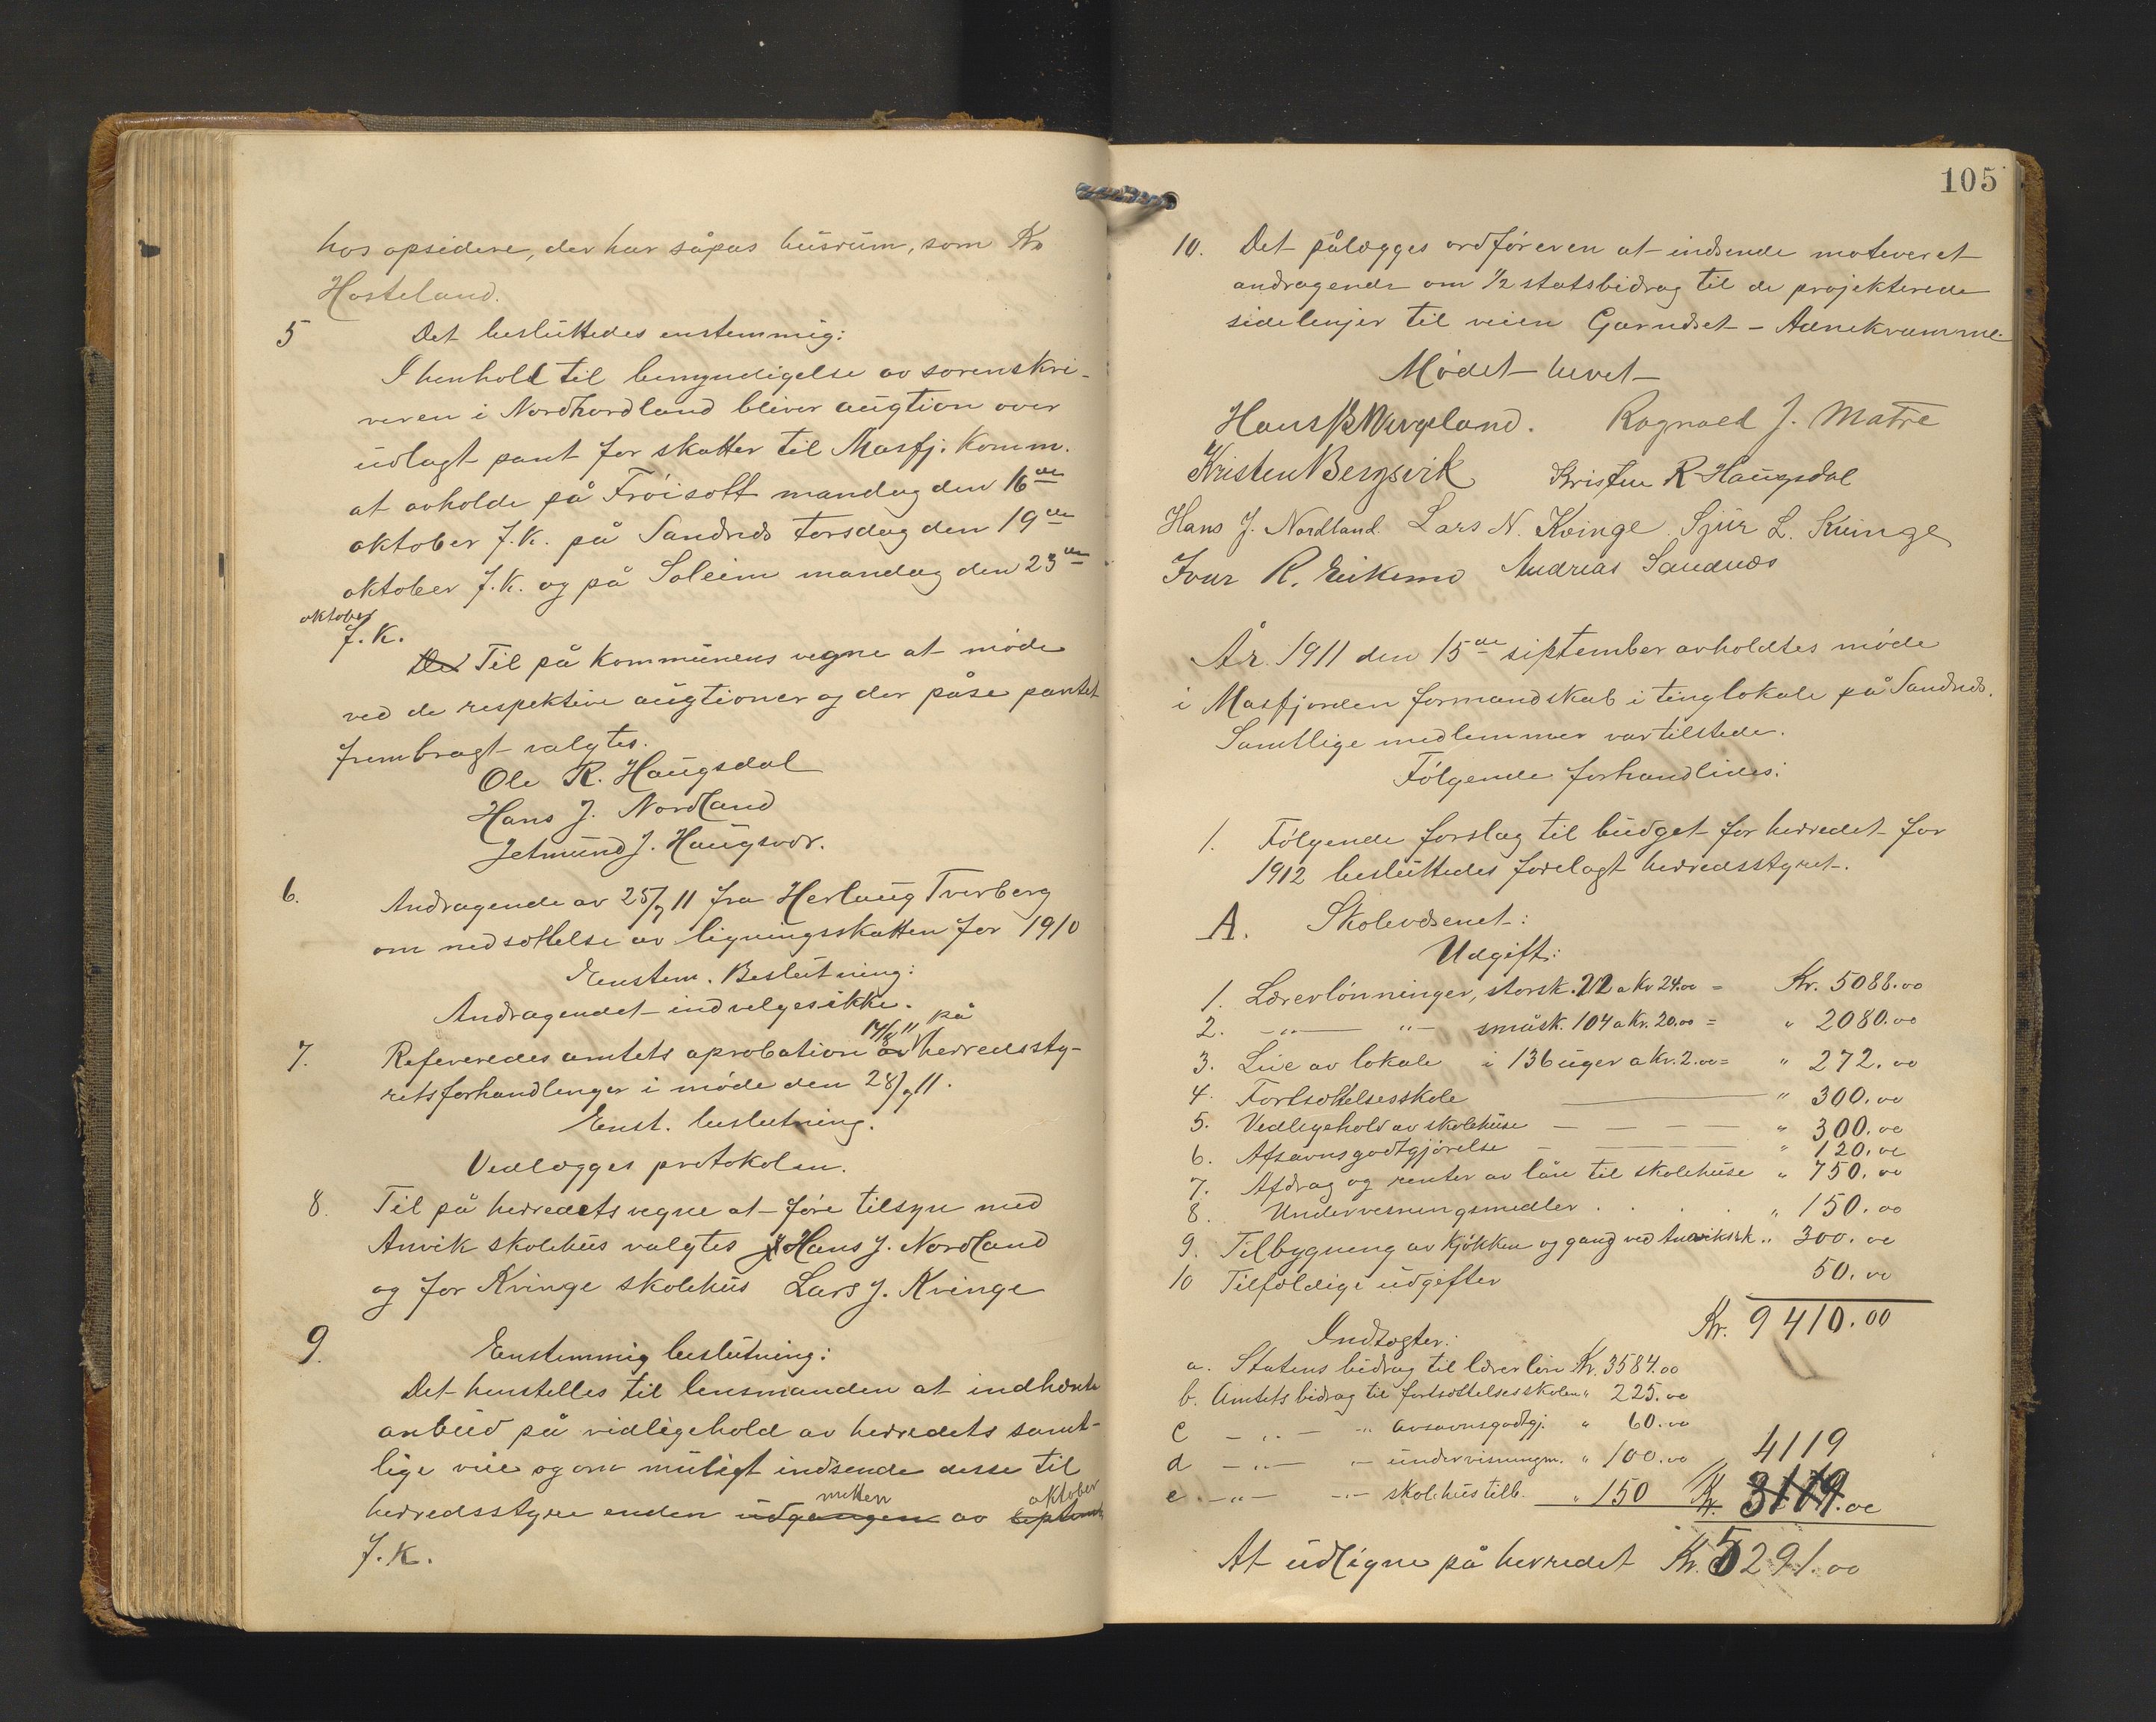 hos opsidere, der har såpas husrum, som Kr
Hosteland.
5 Det besluttedes enstemmig:
I henhold til bemyndigelse av sorenskri-
veren i Nordhordland bliver augtion over
udlagt pant for skatter til Masfj. Komm.
at avholde på Frøisett mandag den 16de
oktober f.k. på Sandnes torsdag den 19de
oktober f.k. og på Soleim mandag den 23de
oktober
f.k.
Det Til på kommunens vegne at møde
ved de respektive augtioner og der påse pantet
frembragt valgtes.
Ole R. Haugsdal
Hans J. Nordland
Jetmund J. Haugsvær.
6. Andragende av 25/7 11 fra Herlaug Tverberg
om nedsættelse av ligningsskatten for 1910
Enstem. Beslutning:
Andragendet indvelges ikke.
14/8 11 på
7. Refereredes amtets aprobation av herredssty-
rets forhandlinger i møde den 28/7 11.
Enst. beslutning.
Vedlægges protokolen.
8. Til på herredets vegne at føre tilsyn med
Anvik skolehus valgtes Hans J. Nordland
og for Kvinge skolehus Lars J. Kvinge
9. Enstemmig beslutning:
Det henstilles til lensmanden at indhente
anbud på vidligehold av herredets samt-
lige veie og om muligt indsende desse til
mitten oktober
herredsstyre enden udgangen av septemb
f.k.
105
10. Det pålægges ordføreren at indsende motiveret
andragende om 1/2 statsbidrag til de projekterede
sidelinjer til veien Garnæset - Adnekvamme.
Mødet hevet
Hans B Nergeland. Ragnald J. Matre
Kristen Bergsvik Kristen R Haugsdal
Hans J. Nordland. Lars N. Kvinge. Sjur L. Kvinge
Ivar R. Eiksmo Andreas Sandnæs
År 1911 den 15de september avholdtes møde
i Masfjorden formandskab i tinglokale på Sandnes.
Samtlige medlemmer var tilstede.
Følgende forhandledes:
1. Følgende forslag til budget for herredet for
1912 besluttedes forelagt herredsstyret.
A. Skolevæsenet:
Udgift:
1. Lærerlønninger, storsk. 212 a Kr 24.00 = Kr. 5088.00
2. -"- "- småsk. 104 a Kr. 20.00 = " 2080.00
3. Leie av lokale i 136 uger a Kr. 2.00 = " 272.00
4. Fortsættelsesskole " 300.00
5. Vedligehold av skolehuse " 300.00
6. Afsavnsgodtgjørelse " 120.00
7. Afdrag og renter av lån til skolehuse " 750.00
8. Undervesningsmedler " 150.00
9. Tilbygning av kjøkken og gang ved Anviksk. " 300.00
10 Tilfældige udgifter 50.00
Kr. 9410.00
Indtægter:
a. Statens bidrag til lærerløn Kr. 3584.00
b. Amtets bidrag til fortsættelsesskolen " 225.00
c -"- "- avsavnsgodtgj. " 60.00
d -"- "- undervisningm. " 100.00 " 4119
e. -"- -"- skolehustilb. " 150 Kr. 3119.00
At udligne på herredet Kr. 5291.00